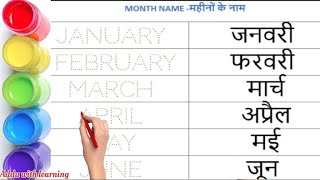 MONTH NAME -महीनों के नाम
JANUARY जनवरी
FEBRUARY फरवरी
MARCH मार्च
APRIL अप्रैल
MAY मई
JUNE जून
Addu with learning